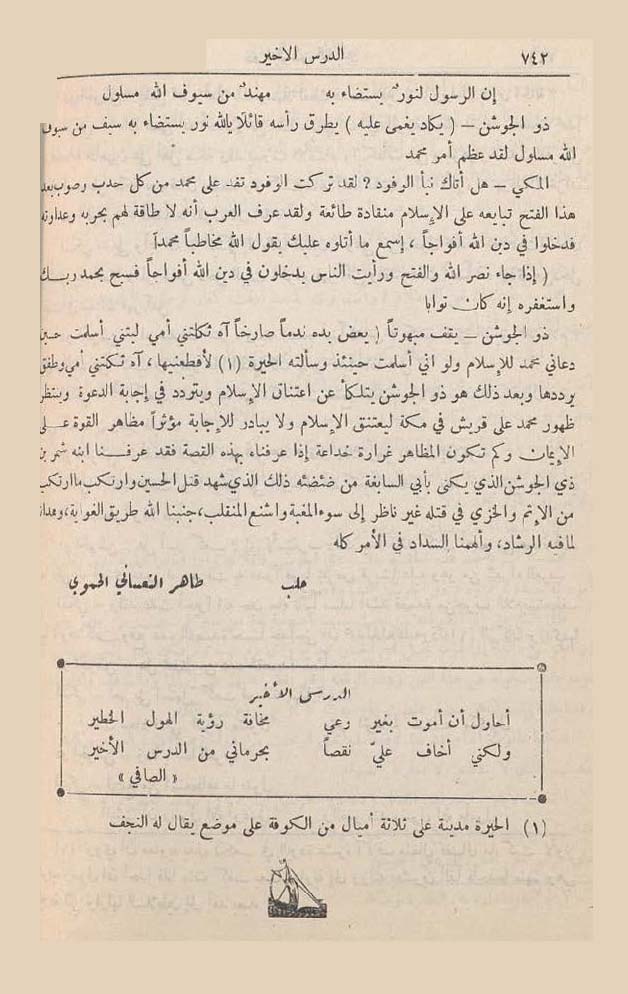 ٧٤٢
الدرس الاخير
إن الرسول لنورٌ يستضاء به مهندٌ من سيوف الله مسلول
ذو الجوشن – ( يكاد يغمى عليه ) يطرق رأسه قائلاً يالله نور يستضاء به سيف من سيوف
الله مسلول لقد عظم أمر محمد
المكي – هل أتاك نبأ الوفود ؟ لقد تركت الوفود تفد على محمد من كل حدب وصوب بعد
هذا الفتح تبايعه على الإسلام منقادة طائعة ولقد عرف العرب أنه لا طاقة لهم بحربه وعداوته
فدخلوا في دين الله أفواجاً ، إسمع ما أتلوه عليك يقول الله مخاطباً محمداً
( إذا جاء نصر الله والفتح ورأيت الناس يدخلون في دين الله أفواجاً فسبح بحمد ربك
واستغفره إنه كان توابا
ذو الجوشن – يقف مبهوتاً ( يعض يده ندماً صارخاً آه ثكلتني أمي ليتني أسلمت حين
دعاني محمد للإسلام ولو اني أسلمت حينئذ وسألته الحيرة (١) لأقطعنيها ، آه ثكلتني أمي وطفق
يرددها وبعد ذلك هو ذو الجوشن يتلكأ عن اعتناق الإسلام ويتردد في إجابة الدعوة وينتظر
ظهور محمد على قريش في مكة ليعتنق الإسلام ولا يبادر للإجابة مؤثراً مظاهر القوة على
الإيمان وكم تكون المظاهر غرارة خداعة إذا عرفناه بهذه القصة فقد عرفنا ابنه شمر بن
ذي الجوشن الذي يكنى بأبي السابغة من ضئضئه ذلك الذي شهد قتل الحسين وارتكب ما ارتكب
من الإثم والخزي في قتله غير ناظر إلى سوء المغبة واشنع المنقلب، جنبنا الله طريق الغواية، وهدانا
لما فيه الرشاد، وألهمنا السداد في الأمر كله
حلب طاهر النعساني الحموي
الدرس الأخير
أحاول أن أموت بغير رعي مخافة رؤية الهول الخطير
ولكني أخاف عليّ نقصاً بحرماني من الدرس الأخير
« الصافي »
(١) الحيرة مدينة على ثلاثة أميال من الكوفة على موضع يقال له النجف